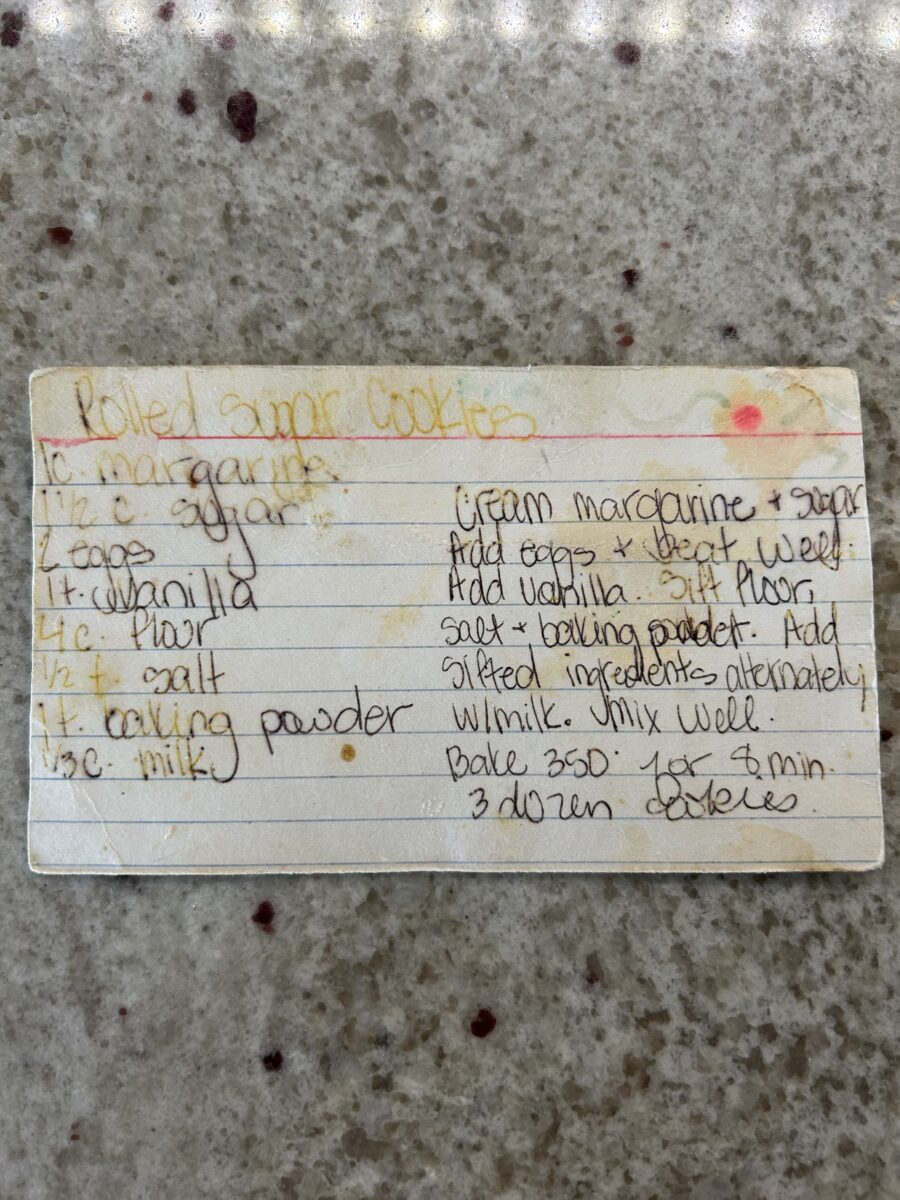 Rolled Sugar Cookies
1c. margarine
1 1/2 c. sugar
2 eggs
1t. vanilla
4c. flour
1/2 t. salt
1t. baking powder
1/3c. milk
Cream margarine + sugar
Add eggs + beat well.
Add vanilla. Sift flour,
salt + baking powder. Add
sifted ingredients alternately
w/milk. Mix well.
Bake 350° for 8 min.
3 dozen cookies.